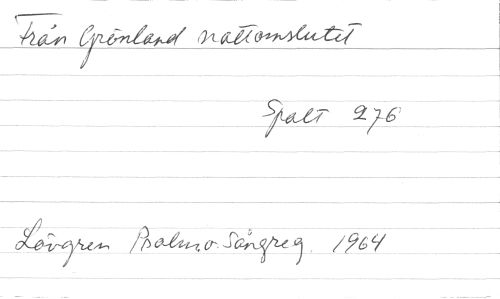 Från Grönland nattomslutet
Spalt 276
Lövgren Psalm. o. Sångreg. 1964